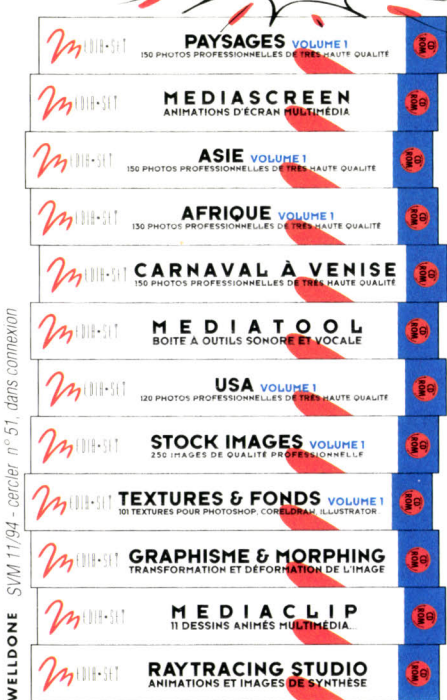 MEDIA•SET PAYSAGES VOLUME 1
150 PHOTOS PROFESSIONNELLES DE TRÈS HAUTE QUALITÉ
CD ROM
MEDIA•SET MEDIASCREEN
ANIMATIONS D'ÉCRAN MULTIMÉDIA
CD ROM
MEDIA•SET ASIE VOLUME 1
150 PHOTOS PROFESSIONNELLES DE TRÈS HAUTE QUALITÉ
CD ROM
MEDIA•SET AFRIQUE VOLUME 1
130 PHOTOS PROFESSIONNELLES DE TRÈS HAUTE QUALITÉ
CD ROM
MEDIA•SET CARNAVAL À VENISE
150 PHOTOS PROFESSIONNELLES DE TRÈS HAUTE QUALITÉ
CD ROM
MEDIA•SET MEDIATOOL
BOITE À OUTILS SONORE ET VOCALE
CD ROM
MEDIA•SET USA VOLUME 1
120 PHOTOS PROFESSIONNELLES DE TRÈS HAUTE QUALITÉ
CD ROM
MEDIA•SET STOCK IMAGES VOLUME 1
250 IMAGES DE QUALITÉ PROFESSIONNELLE
CD ROM
MEDIA•SET TEXTURES & FONDS VOLUME 1
101 TEXTURES POUR PHOTOSHOP, CORELDRAW, ILLUSTRATOR...
CD ROM
MEDIA•SET GRAPHISME & MORPHING
TRANSFORMATION ET DÉFORMATION DE L'IMAGE
CD ROM
MEDIA•SET MEDIACLIP
11 DESSINS ANIMÉS MULTIMÉDIA...
CD ROM
MEDIA•SET RAYTRACING STUDIO
ANIMATIONS ET IMAGES DE SYNTHÈSE
CD ROM
WELLDONE SVM 11/94 - cercler n° 51, dans connexion